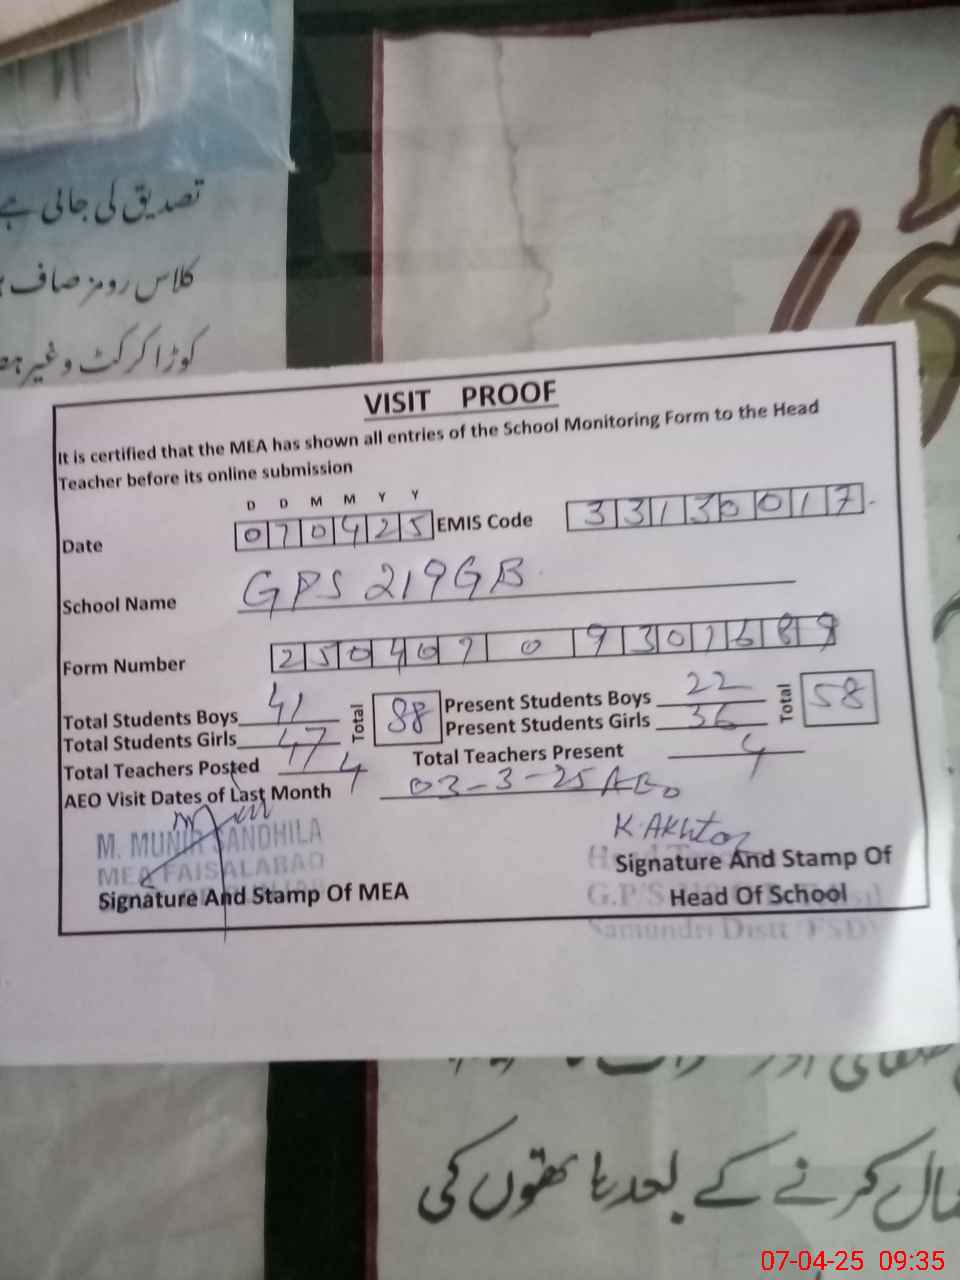 تصدیق کی جاتی ہے
کلاس رومز صاف
کوڑا کرکٹ وغیرہ
VISIT PROOF
It is certified that the MEA has shown all entries of the School Monitoring Form to the Head
Teacher before its online submission
D D M M Y Y
Date 070425 EMIS Code 33130017
School Name GPS 219GB
Form Number 250407 0 9301689
Total Students Boys 41 Total 88 Present Students Boys 22 Total 58
Total Students Girls 47 Present Students Girls 36
Total Teachers Posted 4 Total Teachers Present 4
AEO Visit Dates of Last Month 03-3-25 AEO
M. MUNIR SANDHILA K. Akhtar
MEA FAISALABAD Signature And Stamp Of
Signature And Stamp Of MEA Head Of School
G.P/S
Samundri Distt FSD
کرنے کے بعد ہاتھوں کی
07-04-25 09:35